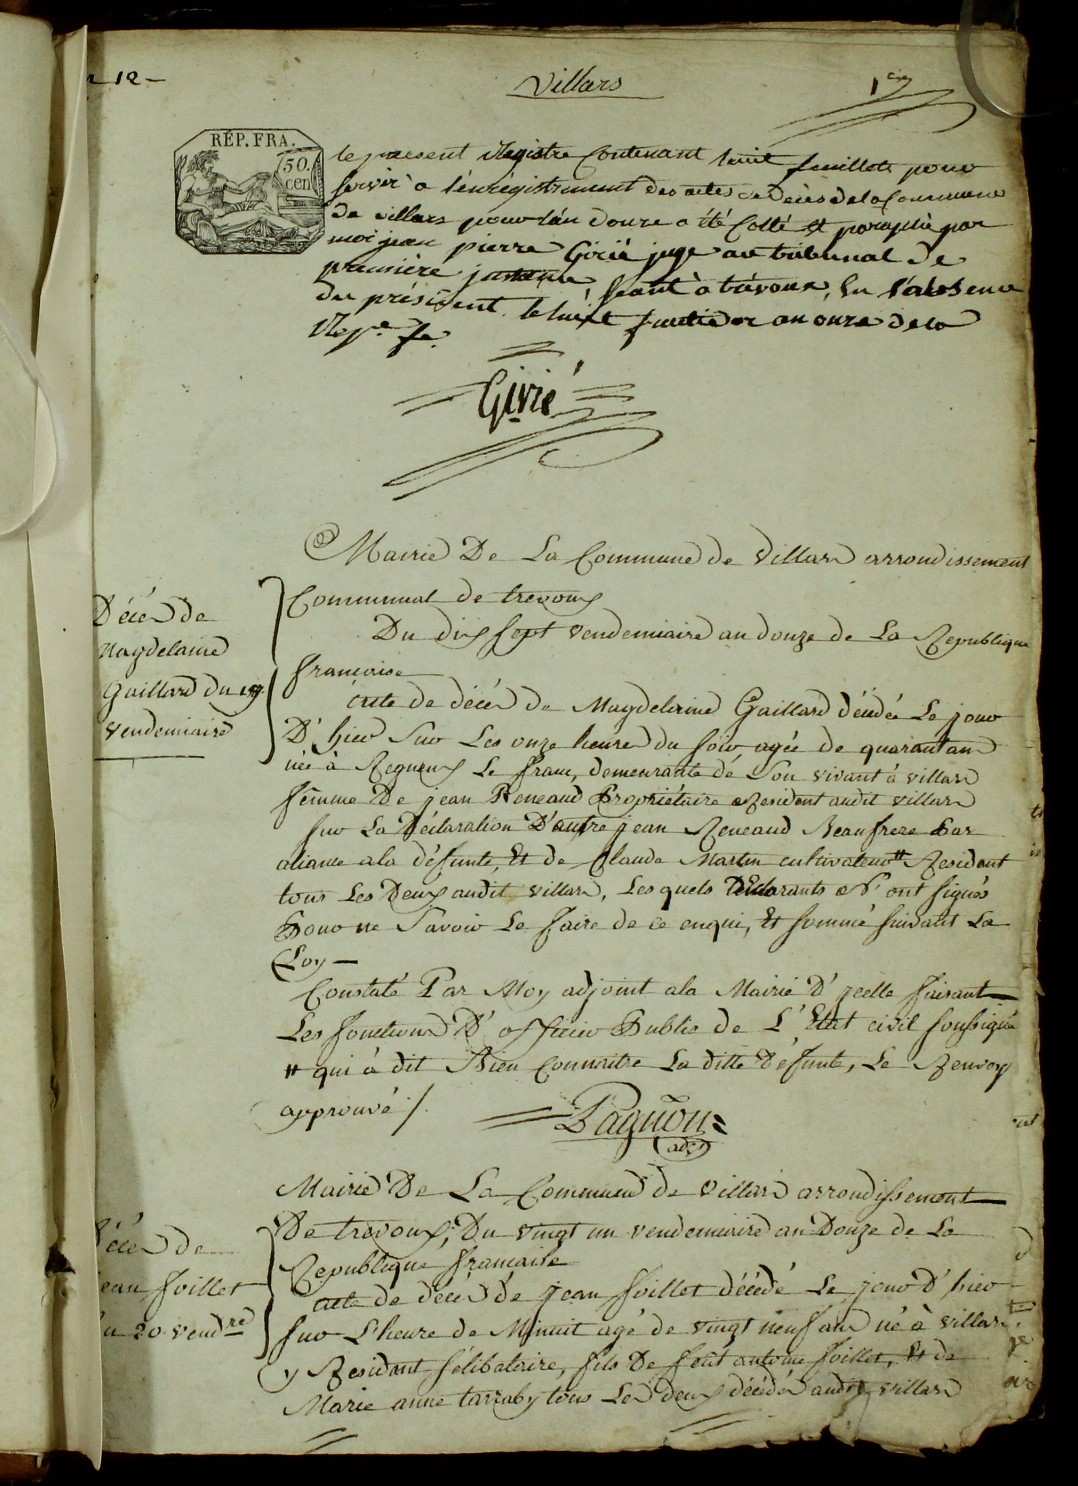 12 —
Villars
1er
RÉP. FRA.
50.
cen
le present Registre Contenant huit feuillets pour
servir a l'enregistrement des actes de Décès de la Commune
de villars pour l'an douze a été Cotté et paraphé par
moi jean pierre Girié juge au tribunal de
première instance séant à trévoux, En l'absence
du président le huit fructidor an onze de la
Repe fe
Girié
Mairie De La Commune de Villars arrondissement
Communal de trevoux
Du dix sept vendemiaire an douze de La Republique
francaise
Décès de
Magdelaine
Gaillard du 17
vendemiaire
acte de décés de Magdelaine Gaillard décédée Le jour
D'hier Sur Les onze heure du soir agée de quarant an
née à Le franc, demeurante de Son vivant à villars
femme De jean Reneaud Propriétaire Resident audit villars
sur La Déclaration D'autre jean Reneaud Beaufrere Par
aliance ala défunte, Et de Claude Martin cultivateur # Resident
tous Les Deux audit villars, Les quels Déclarants ont signés
Pour ne Savoir Le faire de ce enqui, Et sommé suivant La
Loy —
Constaté Par Moy adjoint ala Mairie D'ycelle faisant
Les fonctions D'officier Public de L'Etat civil soussigné
# qui à dit Bien Connoitre La ditte défunte, Le Renvoy
approuvé /.
Pagnon
adjt
Mairie De La Commune de Villars arrondissement
De trevoux, Du vingt un vendemiaire an Douze de La
Republique francaise
Décés de
jean foillet
du 20 vendre
acte de décés de jean foillet décédé Le jour d'hier
sur L'heure de Minuit agé de vingt neuf ans né à villars
y Resident Célibataire, fils De feut antoine foillet, Et de
Marie anne tarraby tous Les deux décédés audit villars